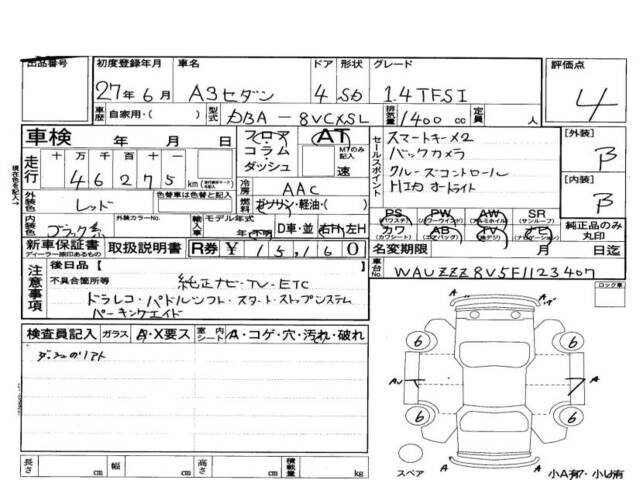 出品番号 初度登録年月 車名 ドア 形状 グレード 評価点
27年6月 A3セダン 4 SD 1.4TFSI 4
車歴 自家用・( ) 型式 DBA-8VCXSL 排気量 1400 cc 定員 人
車検 年 月 日 フロア コラム ダッシュ AT MTのみ記入 速
セールスポイント
スマートキー×2
バックカメラ
クルーズコントロール
HIDオートライト
[外装] B
[内装] B
走行 十 万 千 百 十 一
46275 km
冷房 AAC
燃料 ガソリン・軽油・( )
外装色 レッド 色替車は色替と記入
内装色 ブラック系 外装カラーNo. 輸入車 モデル年式 年・不明 D車・並 右H・左H
PS (パワステ) PW (パワーウインド) AW (アルミホイル) SR (サンルーフ)
カワ (カワシート) AB (エアバッグ) TV (地デジ) ナビ (ナビゲーション)
純正品のみ丸印
新車保証書 ディーラー捺印あるもの 取扱説明書 R券 ¥15,160
名変期限 月 日迄
車台No. WAUZZZ8V5F1123407
注意事項
後日品[ ]
不具合箇所等 純正ナビ・TV・ETC
ドラレコ・パドルシフト・スタートストップシステム
パーキングエイド
ロック車
検査員記入 ガラス A・X要ス 室内シート A・コゲ・穴・汚れ・破れ
A
AU A
A
6 6
6 6
スペア
小A有・小U有
長さ cm 幅 cm 高さ cm 積載量 kg
現在色を記入→